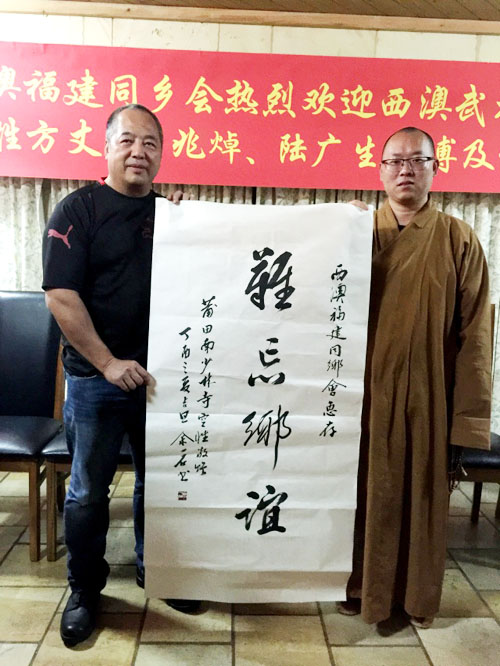 澳福建同乡会热烈欢迎西澳武
性方丈 兆焯、陆广生 傅及
西澳福建同鄉會惠存
難忘鄉誼
莆田南少林寺空性敬贈
丁酉之夏吉旦 余石书